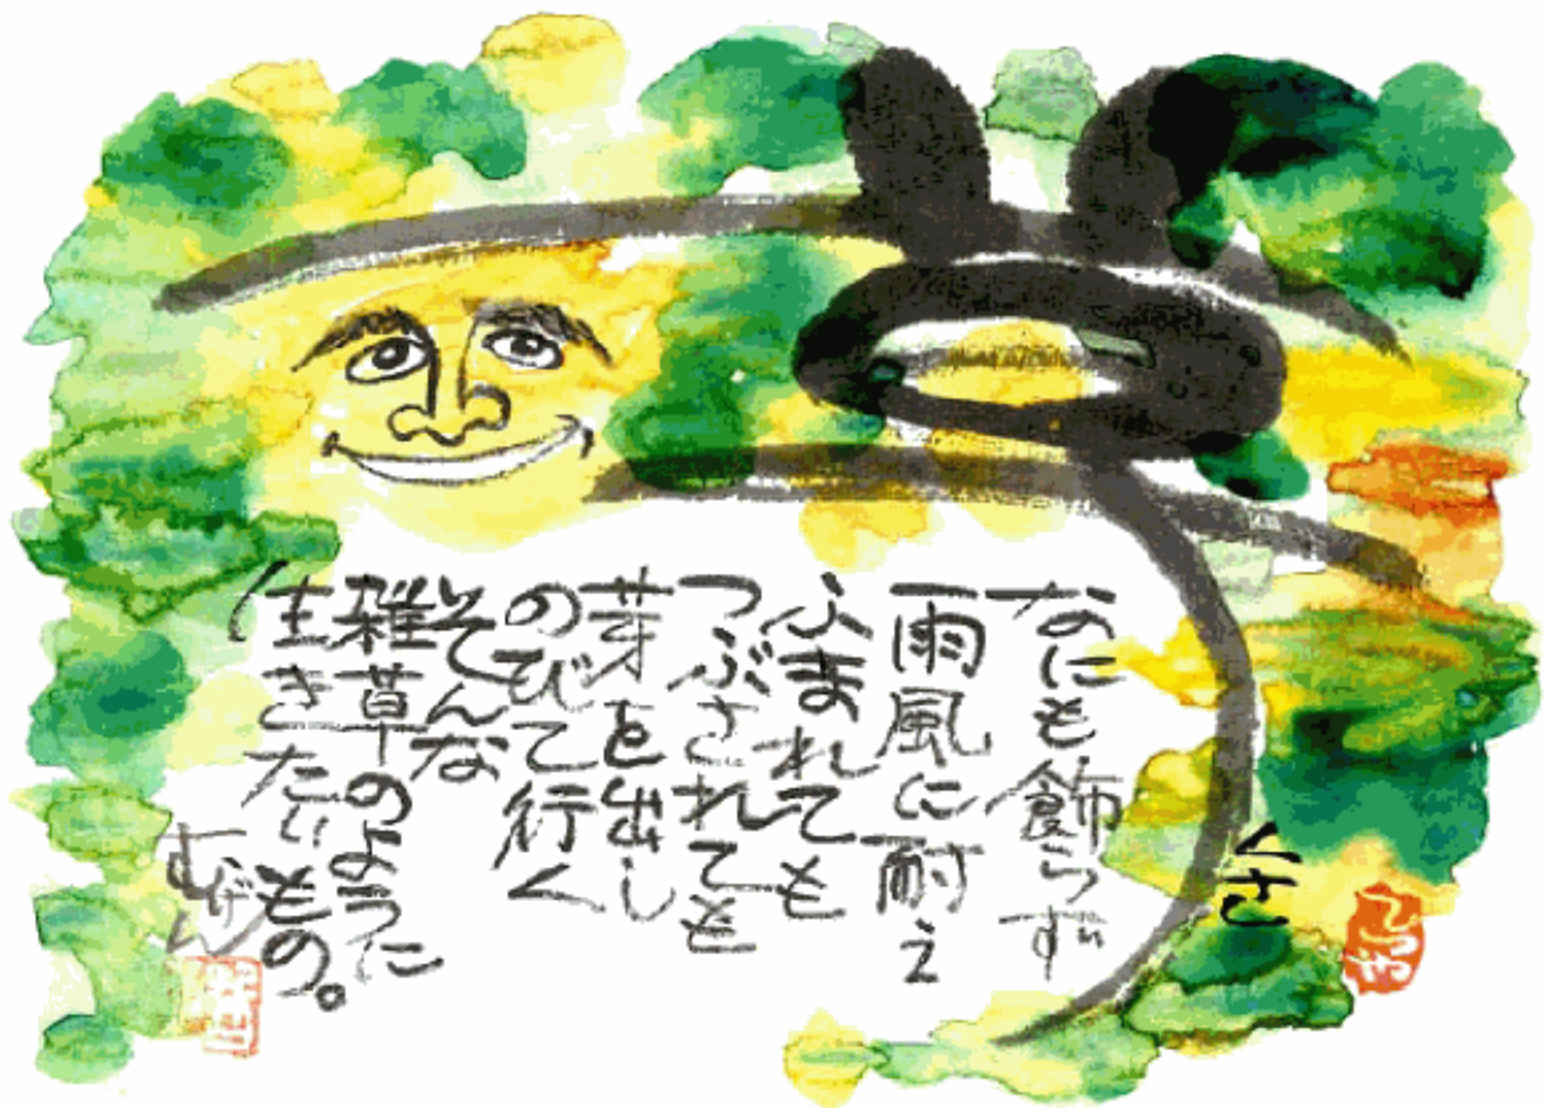 草
くさ
なにも飾らず
雨風に耐え
ふまれても
つぶされても
芽を出し
のびて行く
そんな
雑草のように
生きたいもの。